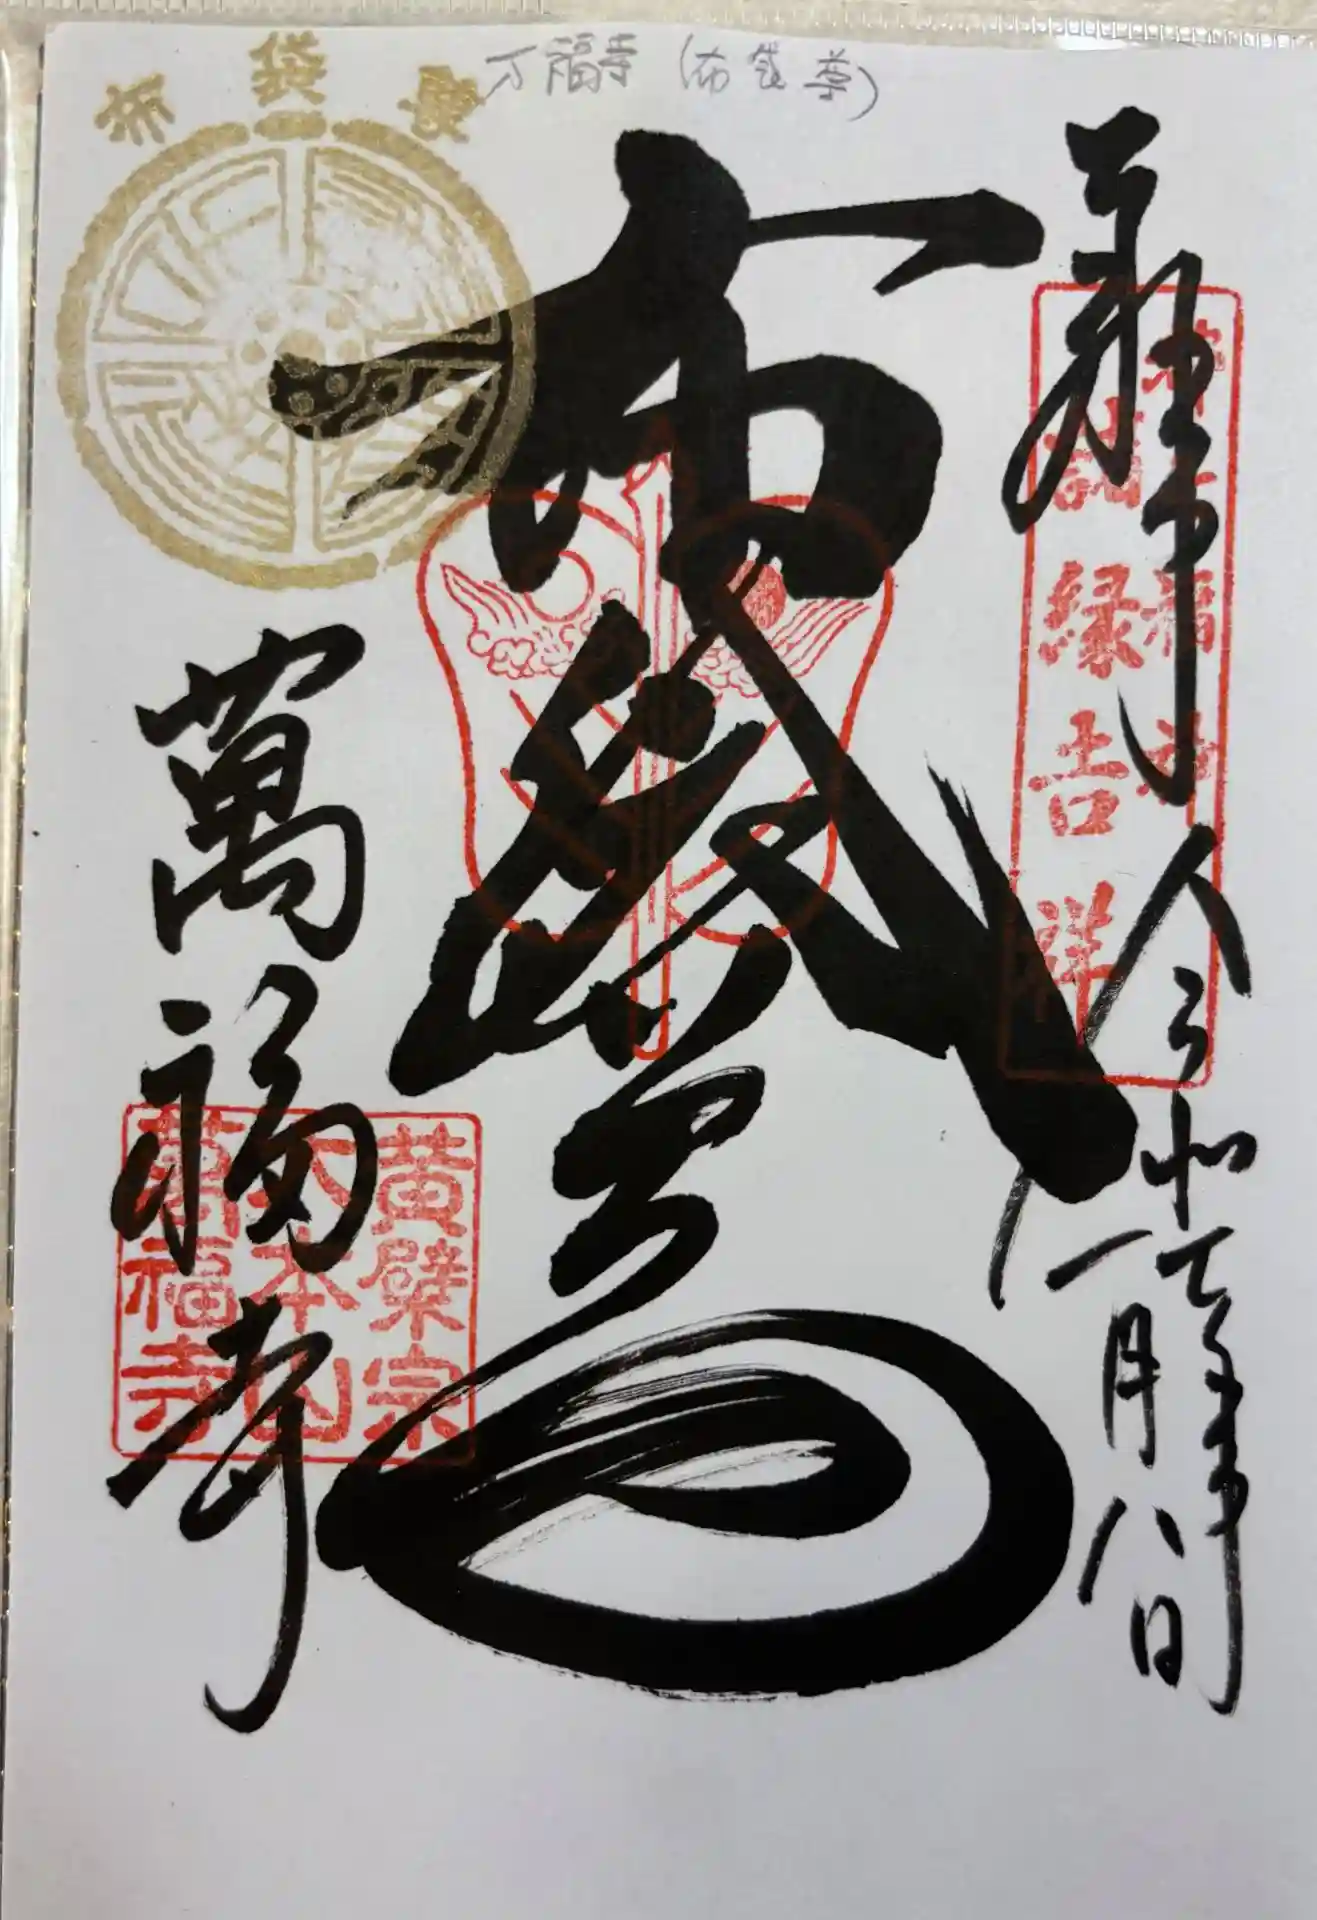 万福寺 (布袋尊)
布袋尊
奉拝 令和七年
一月八日
諸縁吉祥
布袋尊
萬福寺
黄檗宗
大本山
萬福寺